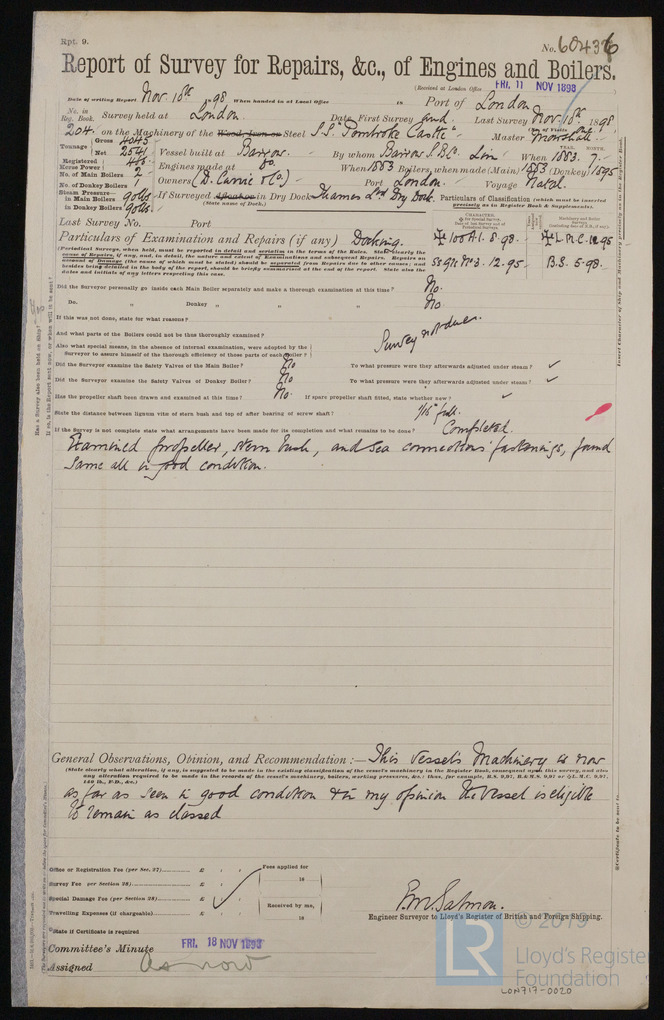 Rpt. 9.
No. 60436
Report of Survey for Repairs, &c., of Engines and Boilers.
(Received at London Office FRI. 11 NOV 1898
Date of writing Report Nov 10th 1898 When handed in at Local Office 18 Port of London
No. in Reg. Book. Survey held at London Date, First Survey and Last Survey Nov. 10th 1898
(No. of Visits one)
204. on the Machinery of the Wood, Iron or Steel S.S. "Pembroke Castle" Master Marshall
Tonnage Gross 4045 Net 2541 Vessel built at Barrow. By whom Barrow S.B.Co. Lim When 1883. 7.
YEAR. MONTH.
Registered Horse Power Engines made at Do. When 1883 Boilers, when made (Main) 1883 (Donkey) 1895
No. of Main Boilers 2
No. of Donkey Boilers 1 Owners (D. Currie & Co.) Port London. Voyage Natal.
Steam Pressure in Main Boilers 90lbs If Surveyed Afloat or in Dry Dock Thames Dry Dock.
(State name of Dock.)
in Donkey Boilers 90lbs.
Particulars of Classification (which must be inserted precisely as in Register Book & Supplements).
Last Survey No. Port
CHARACTER.
Particulars of Examination and Repairs (if any) Docking.
100 A1. 8.98. L.M.C. 12.95
SS Gk No 3. 12.95 B.S. 5.98.
(Periodical Surveys, when held, must be reported in detail and seriatim in the terms of the Rules. State clearly the
cause of Repairs, if any, and, in detail, the nature and extent of Examinations and subsequent Repairs. Repairs on
account of Damage (the cause of which must be stated) should be separated from Repairs due to other causes; and
besides being detailed in the body of the report, should be briefly summarised at the end of the report. State also the
dates and initials of any letters respecting this case.
Did the Surveyor personally go inside each Main Boiler separately and make a thorough examination at this time? No.
Do. " Donkey " " " No
If this was not done, state for what reasons?
And what parts of the Boilers could not be thus thoroughly examined? Survey not due.
Also what special means, in the absence of internal examination, were adopted by the
Surveyor to assure himself of the thorough efficiency of those parts of each Boiler?
Did the Surveyor examine the Safety Valves of the Main Boiler? No To what pressure were they afterwards adjusted under steam? ✓
Did the Surveyor examine the Safety Valves of Donkey Boiler? No To what pressure were they afterwards adjusted under steam? ✓
Has the propeller shaft been drawn and examined at this time? No. If spare propeller shaft fitted, state whether new? ✓
State the distance between lignum vitæ of stern bush and top of after bearing of screw shaft? 1/16" full.
If the Survey is not complete state what arrangements have been made for its completion and what remains to be done? Completed.
Examined propeller, stern bush, and sea connections fastenings, found
same all in good condition.
General Observations, Opinion, and Recommendation:— This vessel's machinery is now
(State clearly what alteration, if any, is suggested to be made in the existing classification of the vessel's machinery in the Register Book, consequent upon this survey, and also
any alteration required to be made in the records of the vessel's machinery, boilers, working pressures, &c.; thus, for example, B.S. 9,97, B.&M.S. 9,97 or L.M.C. 9,97,
140 lb., F.D., &c.)
as far as seen in good condition & in my opinion the vessel is eligible
to remain as classed
Office or Registration Fee (per Sec. 27) £ : : Fees applied for
Survey Fee (per Section 28) £ : : 18
Special Damage Fee (per Section 28) £ : : Received by me,
Travelling Expenses (if chargeable) £ : : 18
P. M. Salmon.
Engineer Surveyor to Lloyd's Register of British and Foreign Shipping.
State if Certificate is required
Committee's Minute FRI. 18 NOV 1898
Assigned as now
© 2019
LR
Lloyd's Register
Foundation
LON717-0020